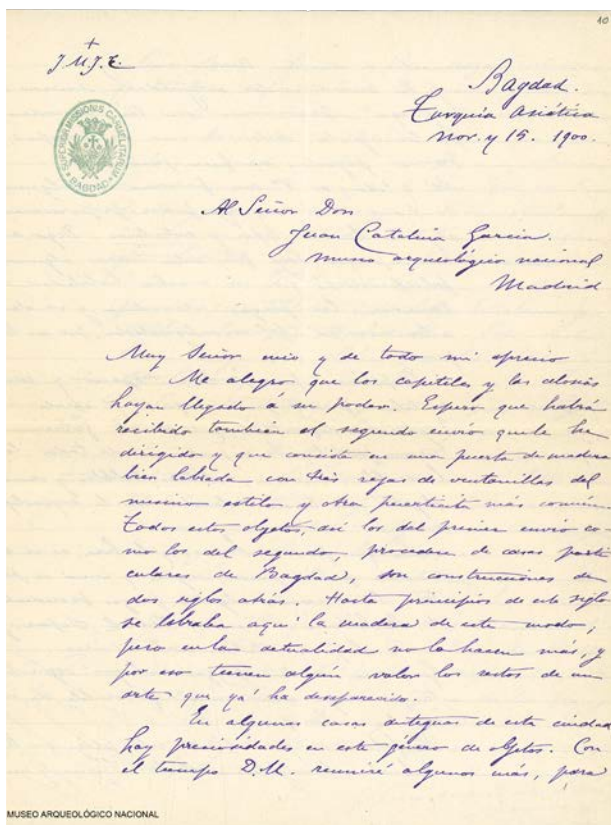 10
J.M.J.T.
Bagdad.
Turquía Asiática
Nov. y 15. 1900.
SUPERIOR MISSIONIS CARMELITARUM
BAGDAD
Al Señor Don
Juan Catalina Garcia.
Museo arqueológico nacional
Madrid
Muy Señor mio y de todo mi aprecio
Me alegro que los capiteles y las celosias
hayan llegado á su poder. Espero que habrá
recibido tambien el segundo envio que le he
dirigido y que consiste en una puerta de madera
bien labrada con trés rejas de ventanillas del
mesimo estilo y otra puertecita más común
Todos estos objetos, asi los del primer envio co-
mo los del segundo, proceden de casas parti
culares de Bagdad, son construcciones de
dos siglos atrás. Hasta principios de este siglo
se labraba aquí la madera de este modo;
pero en la actualidad no lo hacen más, y
por eso tienen algún valor los restos de un
arte que ya ha desaparecido.
En algunas casas antiguas de esta ciudad
hay preciosidades en este género de objetos. Con
el tiempo D.M. reuniré algunos más, para
MUSEO ARQUEOLÓGICO NACIONAL